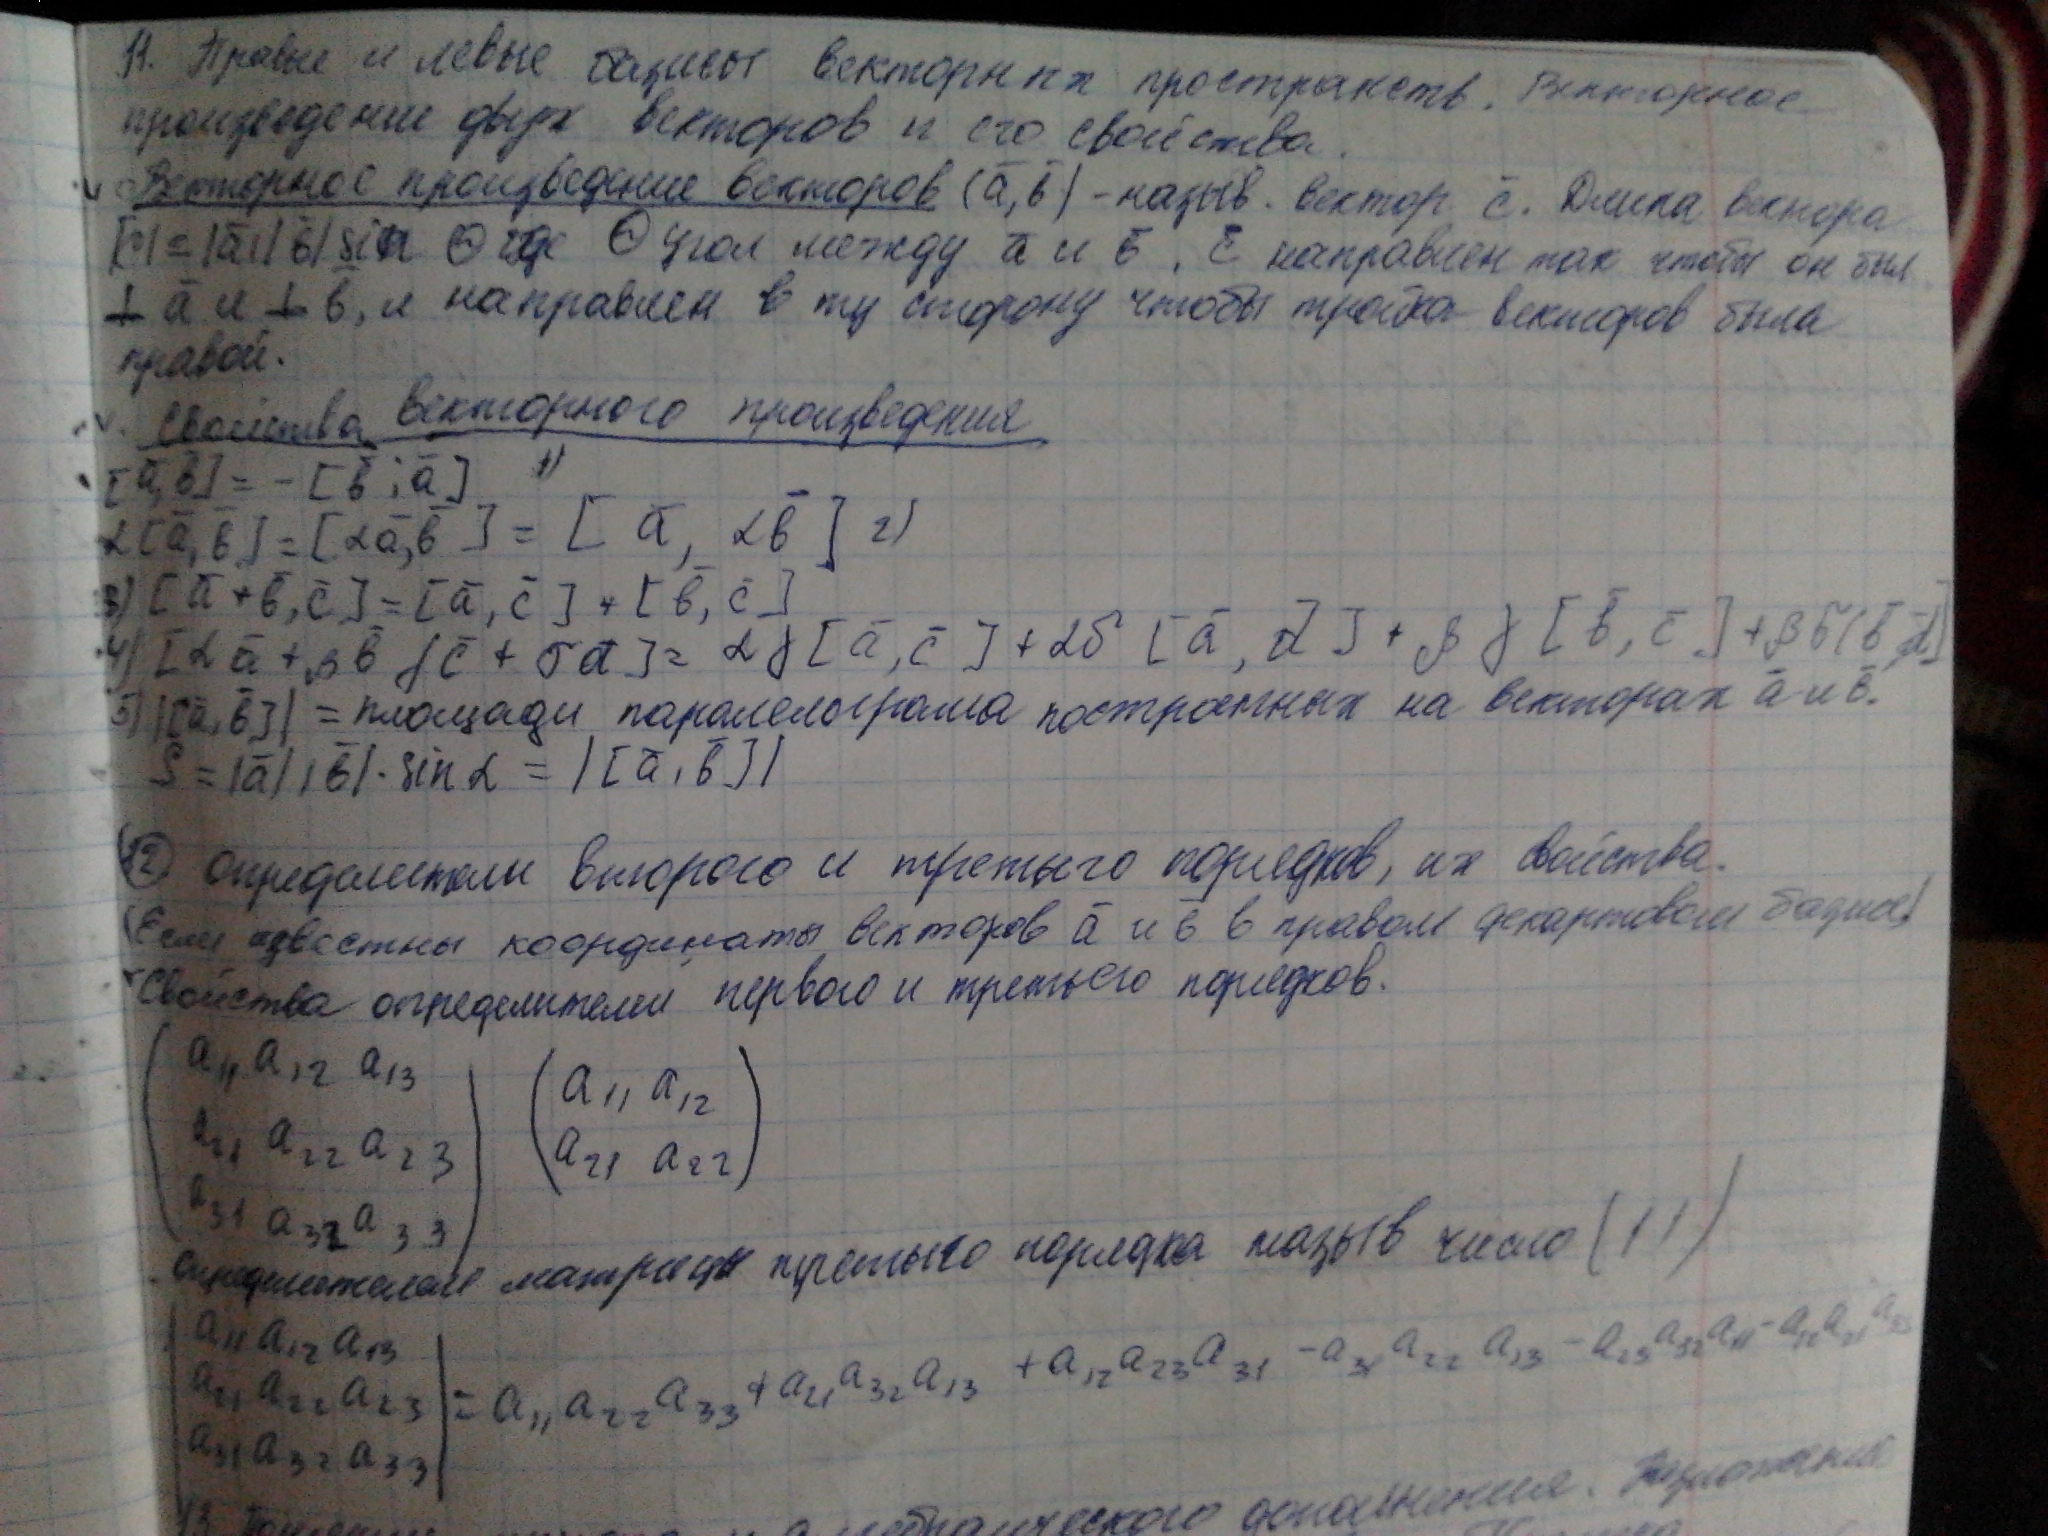 11. Правые и левые базисы векторных пространств. Векторное
произведение двух векторов и его свойства.
Векторное произведение векторов (ā, b̄) - назыв. вектор c̄. Длина вектора
|c̄| = |ā| |b̄| sin Θ где Θ угол между ā и b̄, c̄ направлен так чтобы он был
⊥ ā и ⊥ b̄, и направлен в ту сторону чтобы тройка векторов была
правой.
Свойства векторного произведения
[ā, b̄] = -[b̄; ā] 1)
α[ā, b̄] = [αā, b̄] = [ā, αb̄] 2)
3) [ā + b̄, c̄] = [ā, c̄] + [b̄, c̄]
4) [αā + βb̄ γc̄ + σd̄] = αγ[ā, c̄] + αδ [ā, d̄] + βγ [b̄, c̄] + βδ[b̄, d̄]
5) |[ā, b̄]| = площади паралелограма построенных на векторах ā и b̄.
S = |ā| |b̄| · sin α = |[ā, b̄]|
12 определители второго и третьего порядков, их свойства.
(Если известны координаты векторов ā и b̄ в правом декартовом базисе)
Свойства определителей первого и третьего порядков.
a₁₁ a₁₂ a₁₃ a₁₁ a₁₂
a₂₁ a₂₂ a₂₃ a₂₁ a₂₂
a₃₁ a₃₂ a₃₃
определителем матрицы третьего порядка назыв число (11)
a₁₁ a₁₂ a₁₃
a₂₁ a₂₂ a₂₃ = a₁₁a₂₂a₃₃ + a₂₁a₃₂a₁₃ + a₁₂a₂₃a₃₁ - a₃₁a₂₂a₁₃ - a₂₃a₃₂a₁₁ - a₁₂a₂₁a₃₃
a₃₁ a₃₂ a₃₃
13. дополнения. Разложение